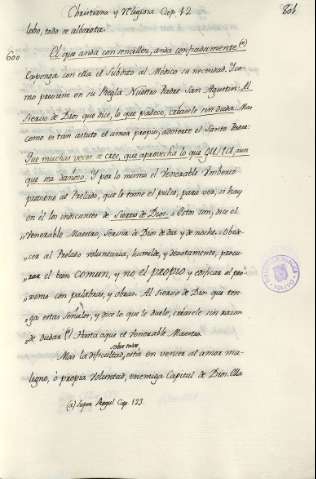 Christiana y Religiosa Cap. 12
801
lobo, todo se alborota.
600 El que anda con sencillez, anda confiadamente. (*)
Exponga con ella el Subdito al Médico su necesidad. Como
previene en su Regla Nuestro Padre San Agustin: Al
Siervo de Dios que dice, lo que padece, créasele sin duda. Mas
como es tan astuto el amor propio, advierte el Santo Padre:
Que muchas veces se cree, que aprovecha lo que gusta, aun
que sea dañoso. Y por lo mismo el Venerable Humberto
previene al Prelado, que le tome el pulso, para ver, si hay
en él los indicantes de Siervo de Dios. Estos son, dice el
„Venerable Maestro, Servir a Dios de dia y de noche: Obede-
„cer al Prelado voluntaria, humilde, y devotamente, procu-
„rar el bien comun, y no el propio y edificar el pro-
„ximo con palabras, y obras. Al Siervo de Dios que ten-
„ga estas señales, y dice lo que le duele, créasele sin razon
„de dudar. (a) Hasta aqui el Venerable Maestro.
sobre todo,
Mas la dificultad, está en vencer al amor ma-
ligno, ó propia voluntad, enemiga Capital de Dios. Ella
(a) Supra Regul. Cap. 193.